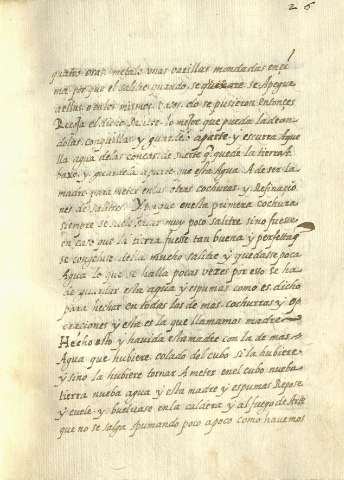 26
quatro oras metalo unas varillas mondadas en el
ma por que el salitre quando se quaxare se apegue
a ellas o en los mismos vasos do se pusieron entonces
Recoja el dicho salitre lo mejor que pueda ladean
dolas conquillas y guardelo aparte y escurra Aque
lla agua de las concas de suerte q quede la tierra A
baxo y guardela aparte que esta Agua A de ser la
madre para hechar en las otras cochuras y Refinacio
nes de salitres Y porque en la primera cochura
siempre se suele sacar muy poco salitre sino fuesse
en caso que la tierra fuesse tan buena y perfetta q
se congelase della mucho salitre y quedase poca
Agua lo que se halla pocas vezes por eso se ha
de guardar esta agua y espumas como es dicho
para hechar en todas las de mas cochuras y op
eraciones y esta es la que llamamos madre
Hecho esto y havida esta madre con la de mas
Agua que hubiere colado del cubo si la hubiere
y sino la hubiere tornar A meter en el cubo nueba
tierra nueba agua y esta madre y espumas Repose
y cuele y buelvase en la caldera y al fuego de Arte
que no se salga spumando poco a poco como havemos